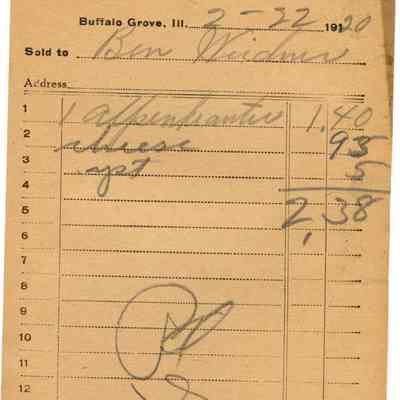 Buffalo Grove, Ill. 2-22 19120
Sold to Ben Weidner
Address
1 1 1.40
2 cheese 93
3 ypt 5
4
5 2,38
6
7
8
9
10
11
12